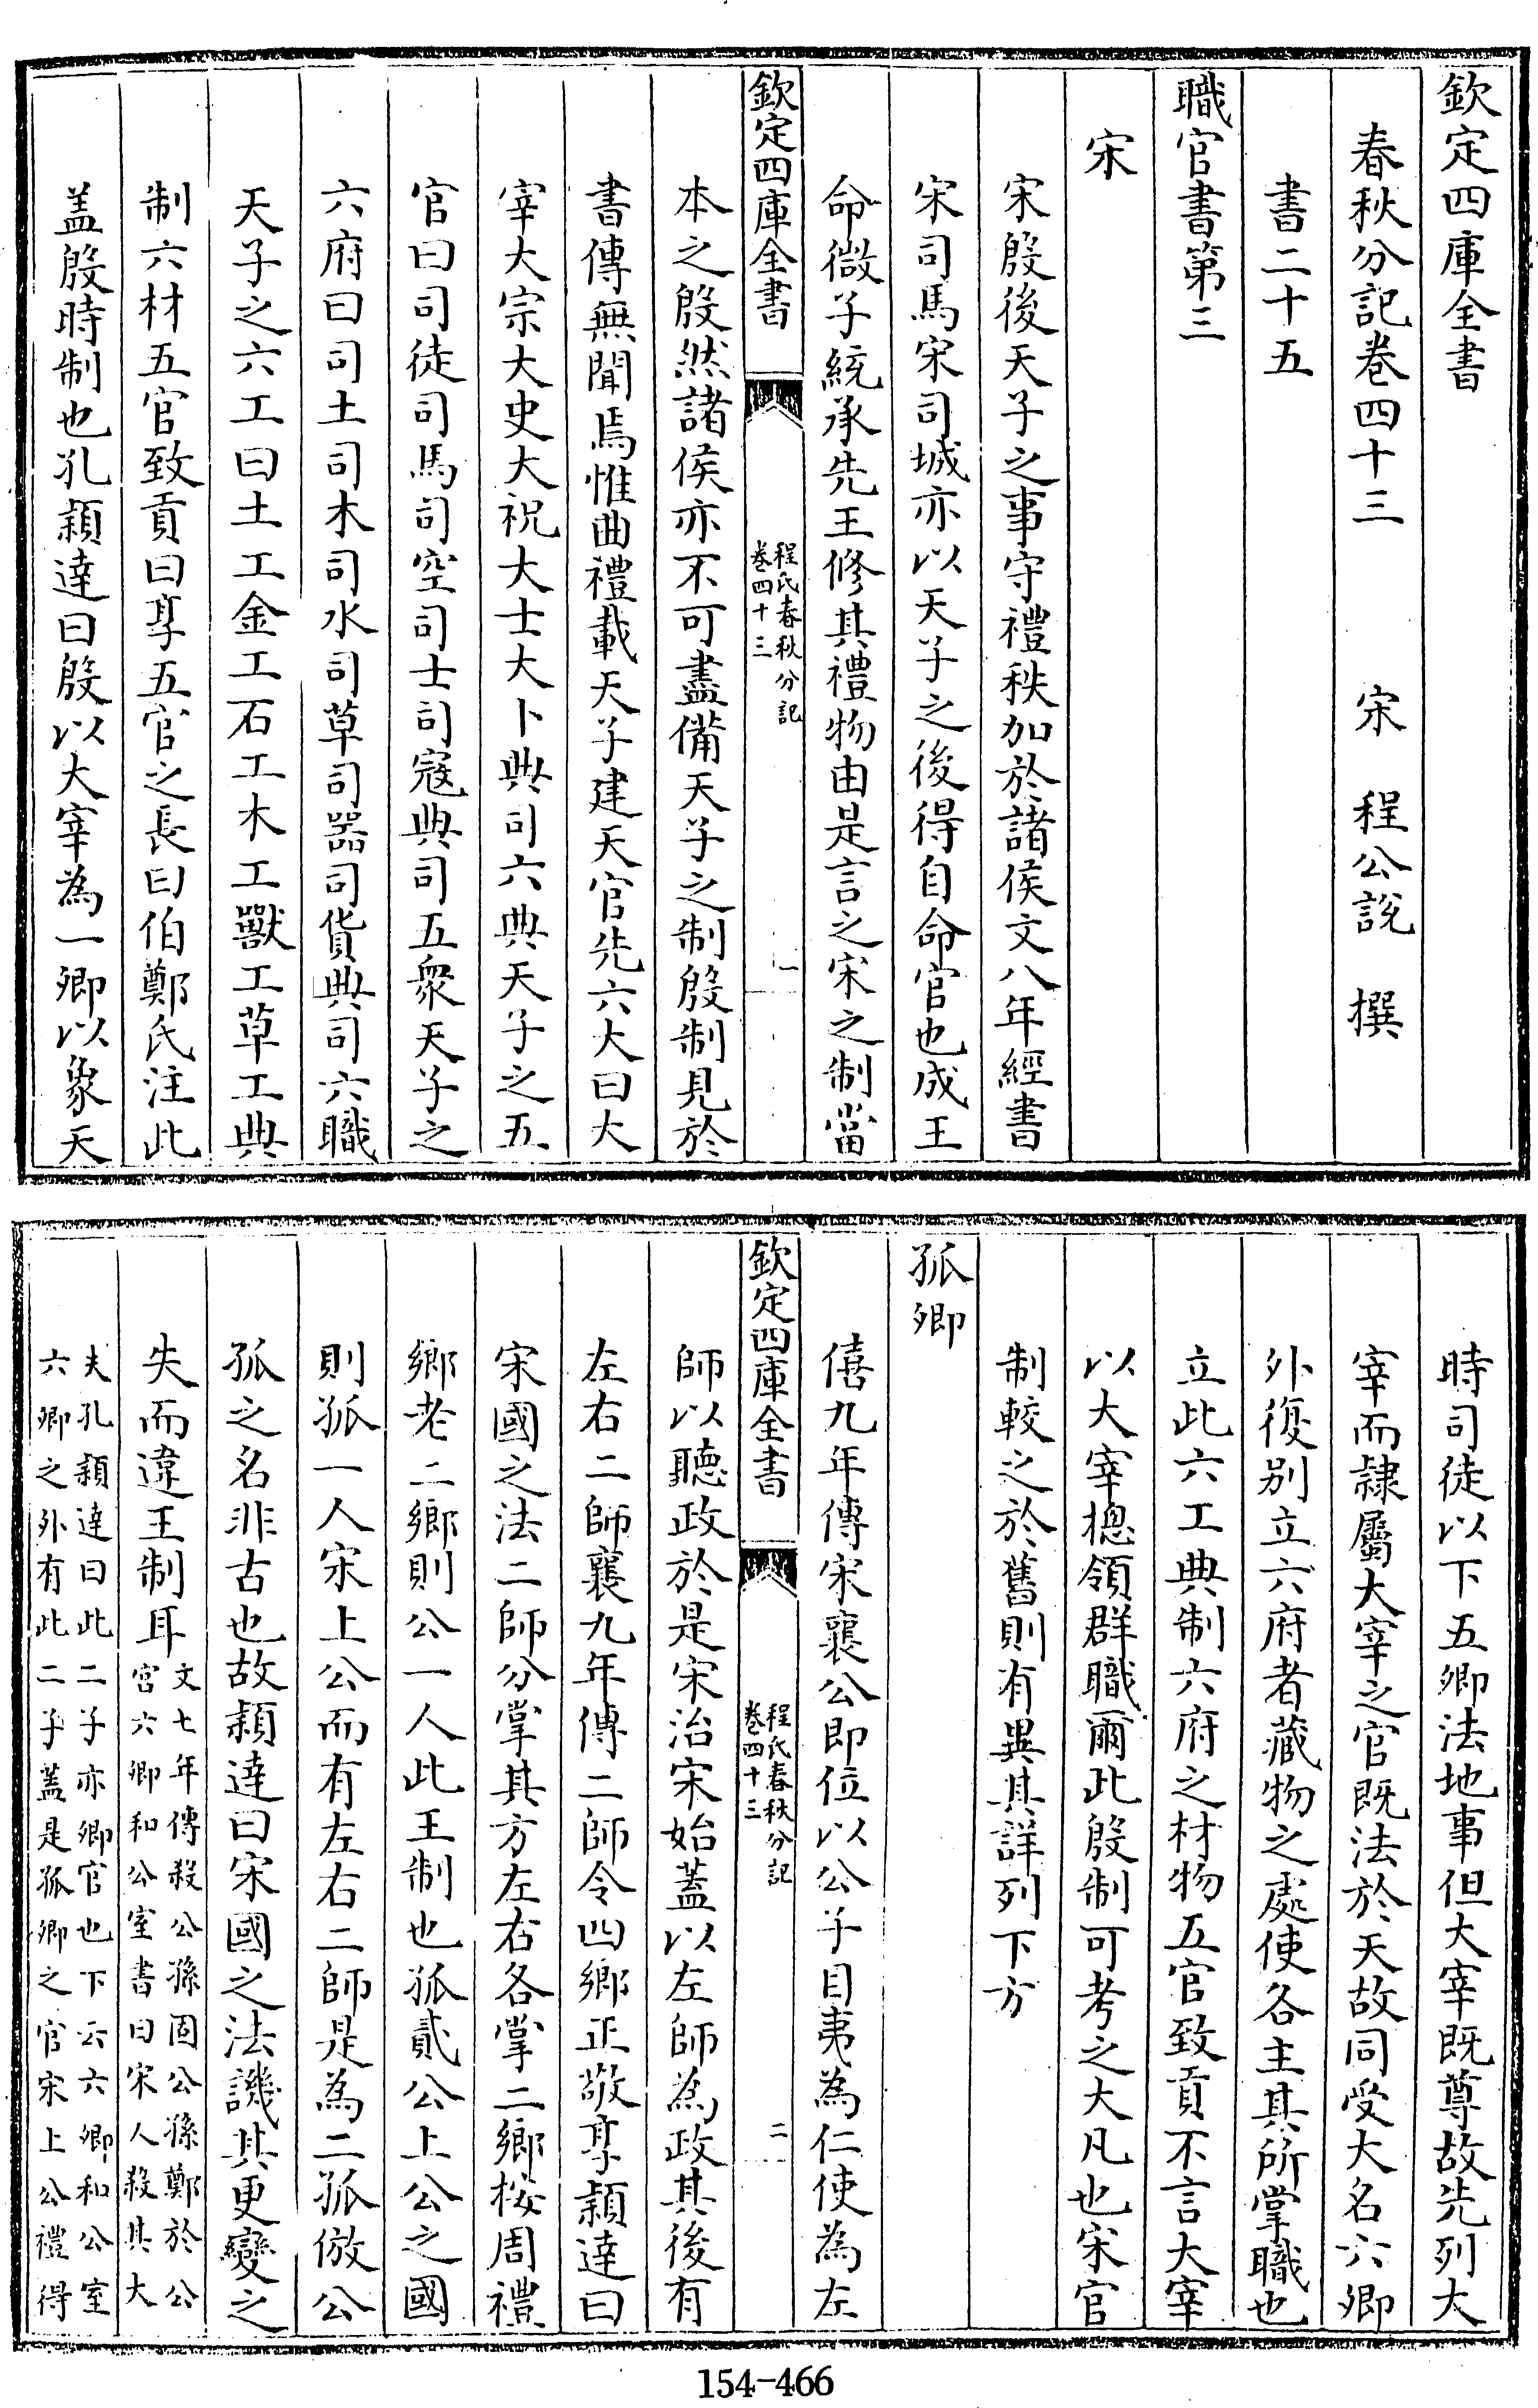 欽定四庫全書
春秋分記卷四十三　宋　程公說　撰
書二十五
職官書第三
宋
宋殷後天子之事守禮秩加於諸侯文八年經書
宋司馬宋司城亦以天子之後得自命官也成王
命微子統承先王修其禮物由是言之宋之制當
欽定四庫全書
程氏春秋分記
卷四十三
一
本之殷然諸侯亦不可盡備天子之制殷制見於
書傳無聞焉惟曲禮載天子建天官先六大曰大
宰大宗大史大祝大士大卜典司六典天子之五
官曰司徒司馬司空司士司寇典司五衆天子之
六府曰司土司木司水司草司器司貨典司六職
天子之六工曰土工金工石工木工獸工草工典
制六材五官致貢曰享五官之長曰伯鄭氏注此
盖殷時制也孔頴達曰殷以大宰為一卿以象天
時司徒以下五卿法地事但大宰既尊故先列大
宰而隸屬大宰之官既法於天故同受大名六卿
外復别立六府者藏物之處使各主其所掌職也
立此六工典制六府之材物五官致貢不言大宰
以大宰揔領群職爾此殷制可考之大凡也宋官
制較之於舊則有異其詳列下方
孤卿
僖九年傳宋襄公即位以公子目夷為仁使為左
欽定四庫全書
程氏春秋分記
卷四十三
二
師以聽政於是宋治宋始蓋以左師為政其後有
左右二師襄九年傳二師令四鄉正敬享頴達曰
宋國之法二師分掌其方左右各掌二鄉按周禮
鄉老二鄉則公一人此王制也孤貳公上公之國
則孤一人宋上公而有左右二師是為二孤倣公
孤之名非古也故頴達曰宋國之法譏其更變之
失而違王制耳
文七年傳殺公孫固公孫鄭於公
宫六卿和公室書曰宋人殺其大
夫孔頴達曰此二子亦卿官也下云六卿和公室
六卿之外有此二子蓋是孤卿之官宋上公禮得
154-466